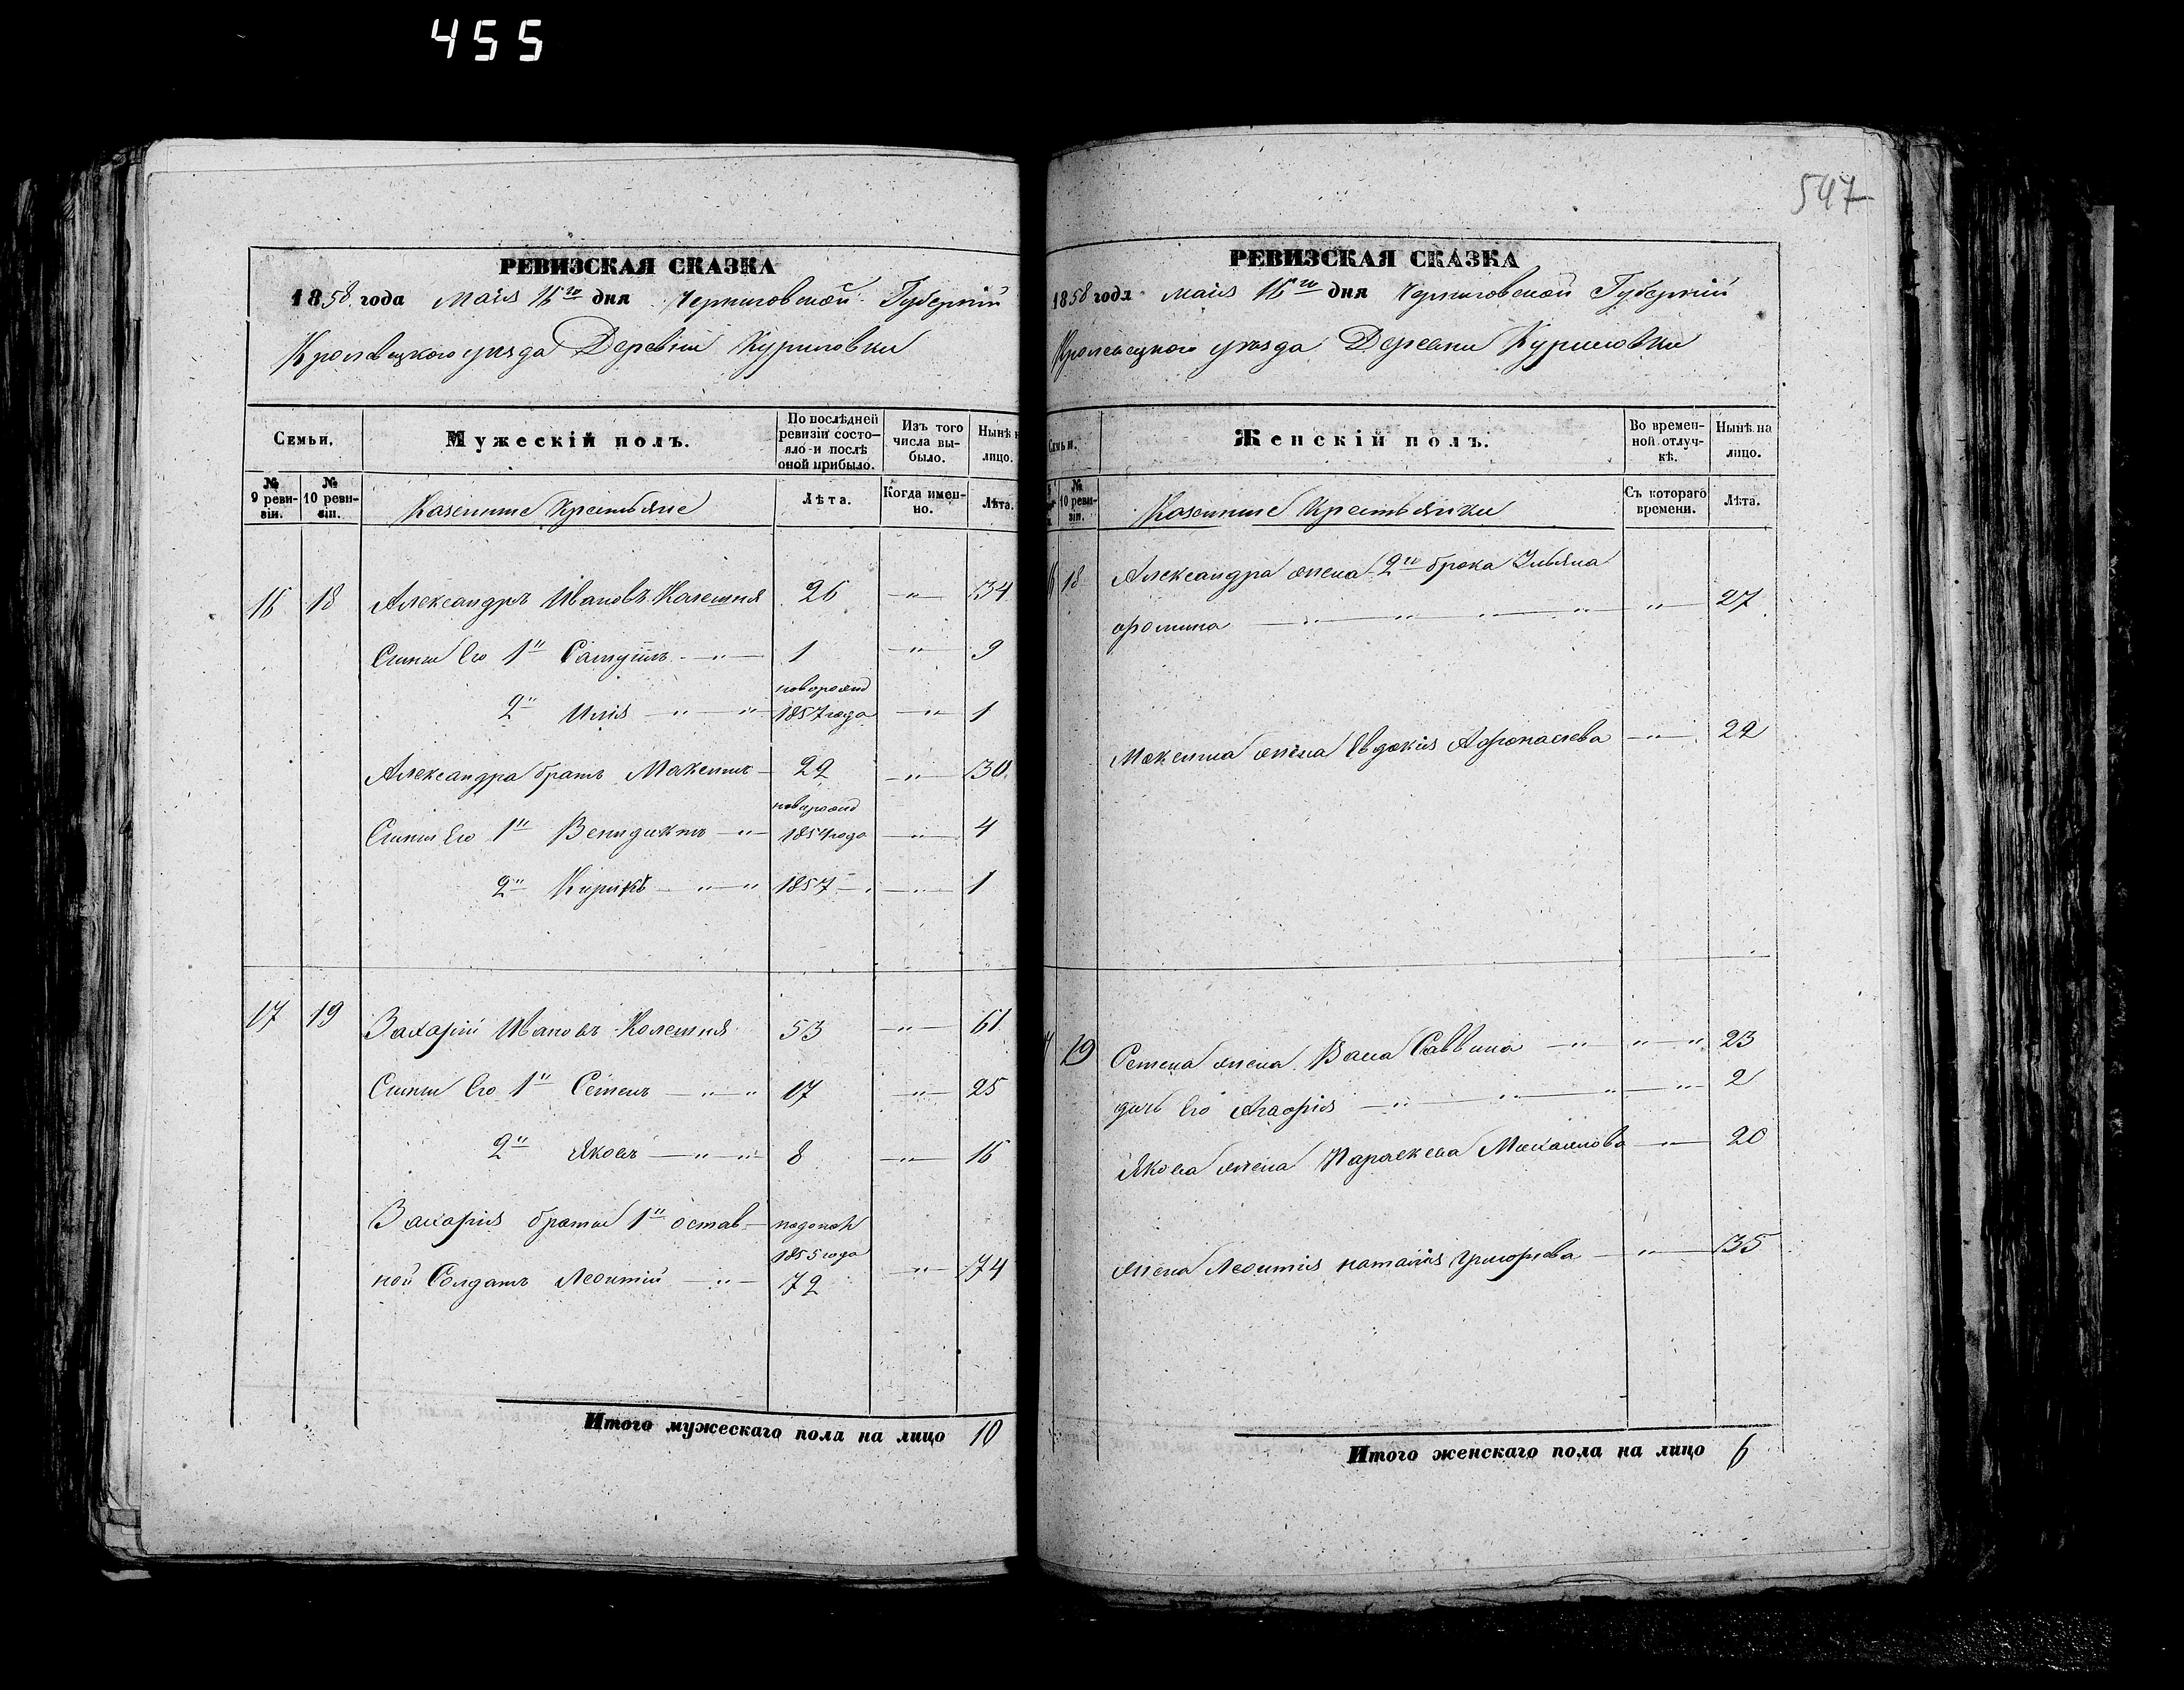 455
547
РЕВИЗСКАЯ СКАЗКА
1858 года Маія 16го дня Черниговской Губерніи
Кролевецкого уезда Деревни Куриловки
Семьи. Мужескій полъ. По послѣдней ревизіи состояло и послѣ оной прибыло. Изъ того числа выбыло. Нынѣ на лицо.
№ 9 ревизіи. № 10 ревизіи. Казенные Крестьяне Лѣта. Когда именно. Лѣта.
16 18 Александръ Ивановъ Колешня 26 — " — 34
Сыны Его 1й — " — 1 — " — 9
новорожд
2й Илія — " — " 1857 года — " — 1
Александра братъ Максимъ — 22 — " — 30
новорожд
Сыны Его 1й Венидиктъ — " — 1854 года — " — 4
2й Кирикъ — " — " 1857 — " — 1
17 19 Захарій Ивановъ Колешня 53 — " — 61
Сыны Его 1й Семенъ — " — " 17 — " — 25
2й Яковъ — " — " 8 — " — 16
Захарія братья 1й отстав-
1855 года
ной Солдатъ Леонтій — " — 72 — " — 74
Итого мужескаго пола на лицо 10
РЕВИЗСКАЯ СКАЗКА
1858 года Маія 16го дня Черниговской Губерніи
Кролевецкого уезда Деревни Куриловки
Семьи. Женскій полъ. Во временной отлучкѣ. Нынѣ на лицо.
№ 10 ревизіи. Казенные Крестьянки Съ котораго времени. Лѣта.
18 Александра жена 2го брака Ульяна
— " — " — " — " — " — 27
Максима жена Евдокія Афонасіева — " — 22
19 Семена жена Васа Саввина — " — " — " 23
дочь Его Агафія — " — " — " — " — 2
Якова жена Параскева Михаилова — " — 20
жена Леонтія наталія Григорьева — " — 35
Итого женскаго пола на лицо 6